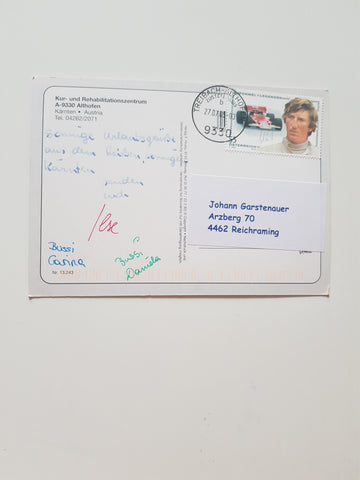 Kur- und Rehabilitationszentrum
A-9330 Althofen
Kärnten • Austria
Tel. 04262/2071
sonnige Urlaubsgrüße
aus dem heißen, sonnigen
Kärnten senden
euch
Ilse
Bussi
Carina
Bussi
Daniela
Nr. 13.243
TREIBACH-ALTHOFEN
b
9330
ÖSTERREICH
Johann Garstenauer
Arzberg 70
4462 Reichraming